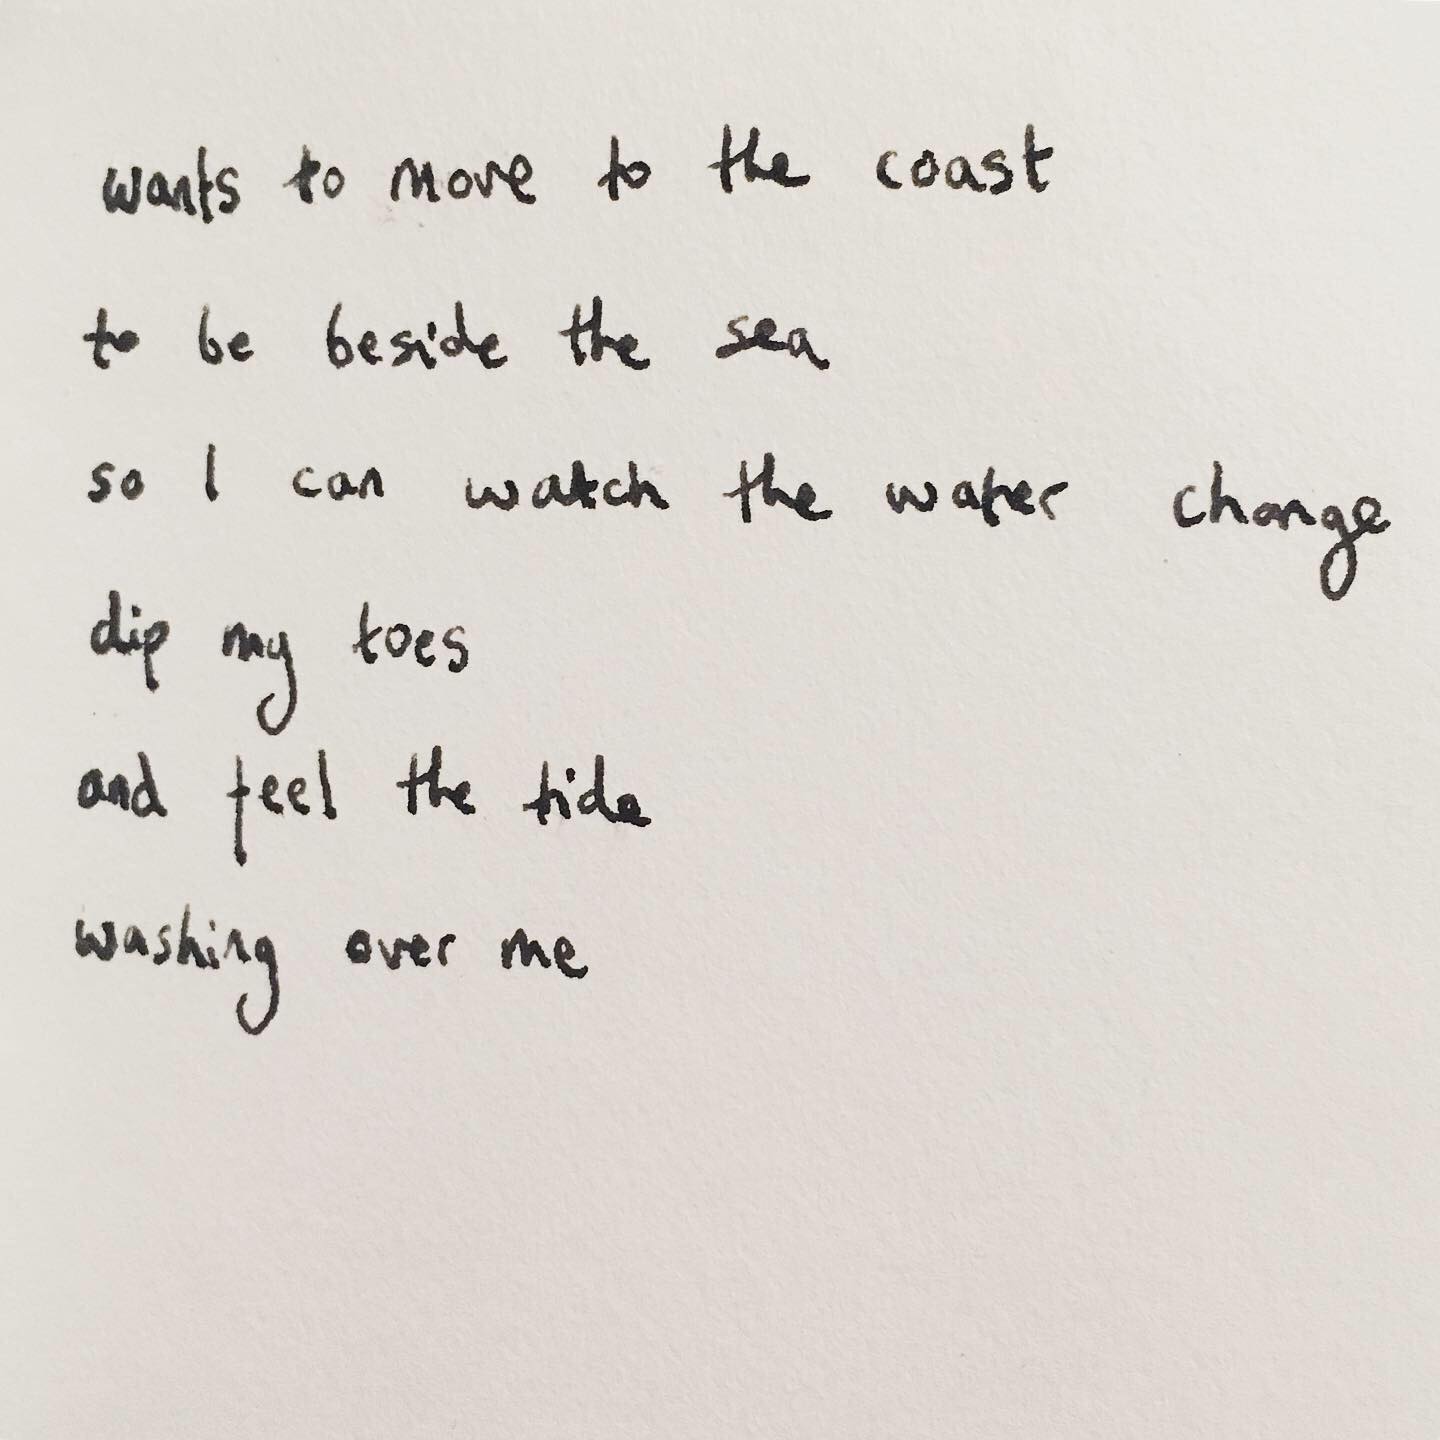 wants to move to the coast
to be beside the sea
so I can watch the water change
dip my toes
and feel the tide
washing over me